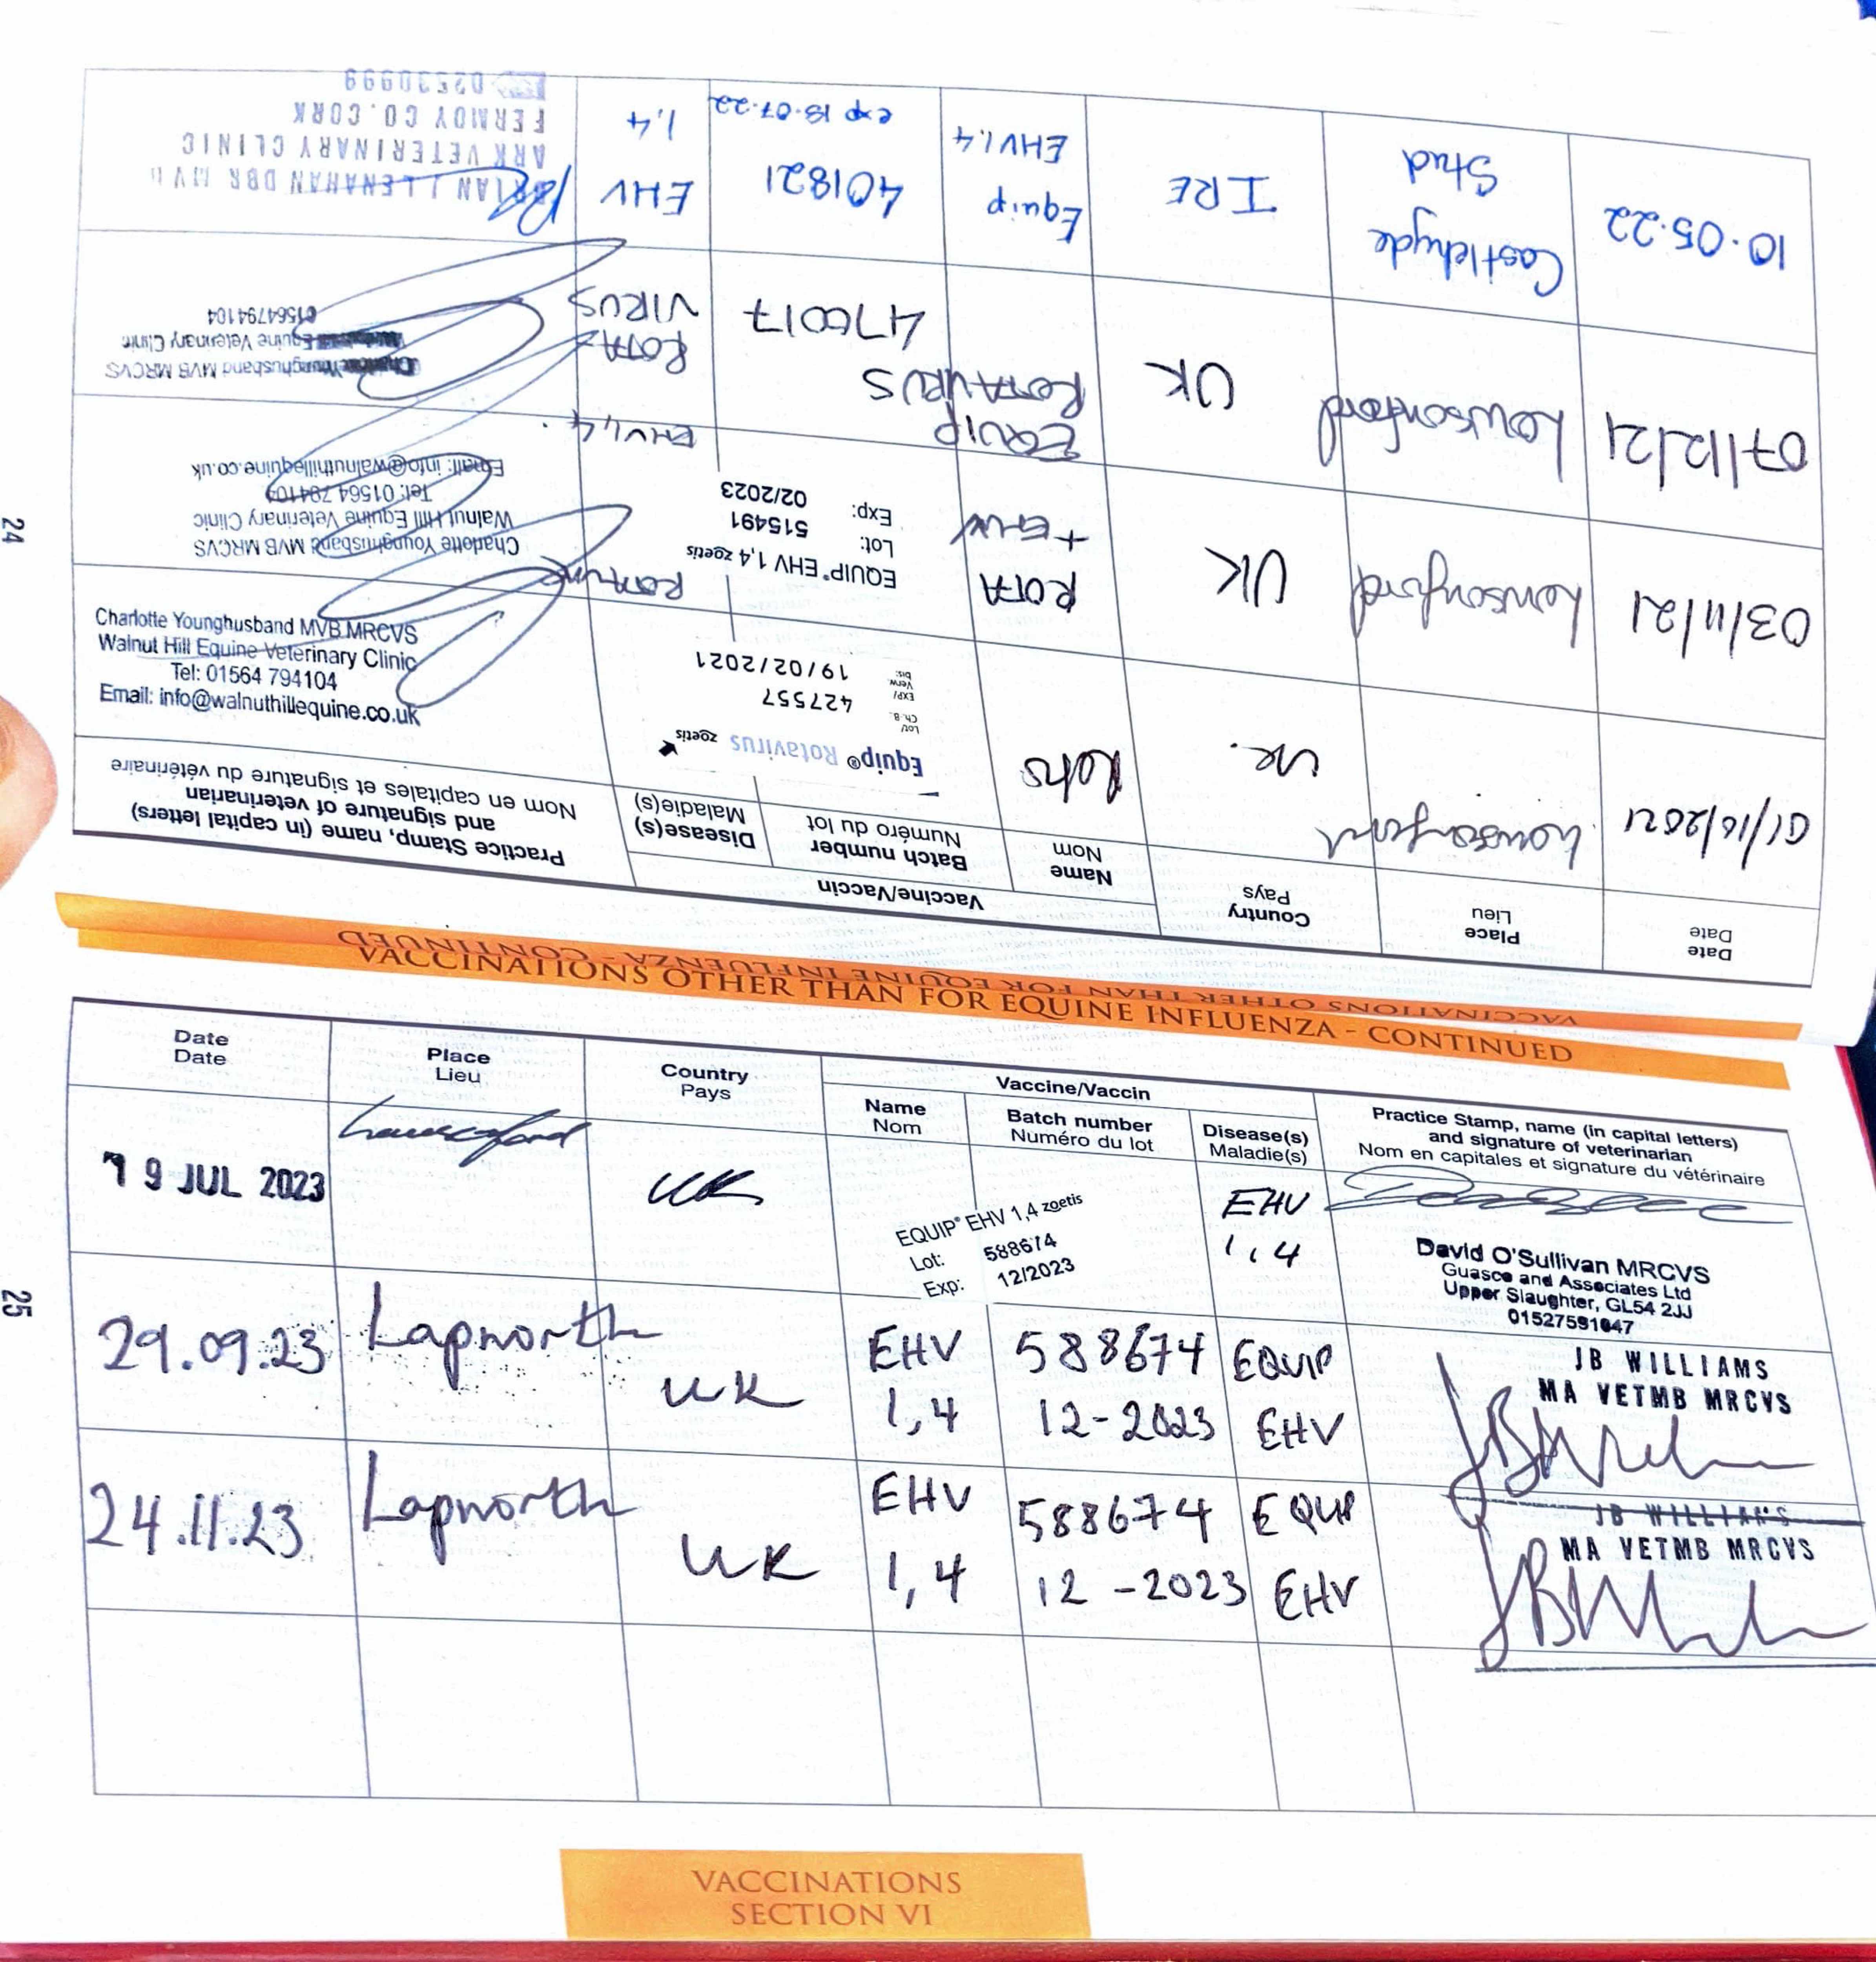 24
VACCINATIONS OTHER THAN FOR EQUINE INFLUENZA - CONTINUED
Date
Date
Place
Lieu
Country
Pays
Vaccine/Vaccin
Name
Nom
Batch number
Numéro du lot
Disease(s)
Maladie(s)
Practice Stamp, name (in capital letters)
and signature of veterinarian
Nom en capitales et signature du vétérinaire
01/10/2021
Lowsonford
UK.
Rota
Equip® Rotavirus zoetis
Lot/
Ch.-B.:
427557
EXP/
Verw.
bis:
19/02/2021
Charlotte Younghusband MVB MRCVS
Walnut Hill Equine Veterinary Clinic
Tel: 01564 794104
Email: info@walnuthillequine.co.uk
03/11/21
Lowsonford
UK
ROTA
+ EHV
EQUIP® EHV 1,4 zoetis
Lot: 515491
Exp: 02/2023
EHV1,4.
Charlotte Younghusband MVB MRCVS
Walnut Hill Equine Veterinary Clinic
Tel: 01564 794104
Email: info@walnuthillequine.co.uk
07/12/21
Lowsonford
UK
EQUIP
ROTAVIRUS
476017
ROTA
VIRUS
Charlotte Younghusband MVB MRCVS
Equine Veterinary Clinic
01564794104
10.05.22
Castlehyde
Stud
IRE
Equip
EHV1,4
401821
exp 18.07.22
EHV
1,4
BRIAN J LENAHAN DBR MVB
ARK VETERINARY CLINIC
FERMOY CO. CORK
02530999
25
VACCINATIONS OTHER THAN FOR EQUINE INFLUENZA - CONTINUED
Date
Date
Place
Lieu
Country
Pays
Vaccine/Vaccin
Name
Nom
Batch number
Numéro du lot
Disease(s)
Maladie(s)
Practice Stamp, name (in capital letters)
and signature of veterinarian
Nom en capitales et signature du vétérinaire
19 JUL 2023
Lowsonford
UK
EQUIP® EHV 1,4 zoetis
Lot: 588674
Exp: 12/2023
EHV
1,4
David O'Sullivan MRCVS
Guasco and Associates Ltd
Upper Slaughter, GL54 2JJ
01527591047
29.09.23
Lapworth
UK
EHV
1,4
588674
12-2023
EQUIP
EHV
JB WILLIAMS
MA VETMB MRCVS
24.11.23
Lapworth
UK
EHV
1,4
588674
12-2023
EQUIP
EHV
JB WILLIAMS
MA VETMB MRCVS
VACCINATIONS
SECTION VI